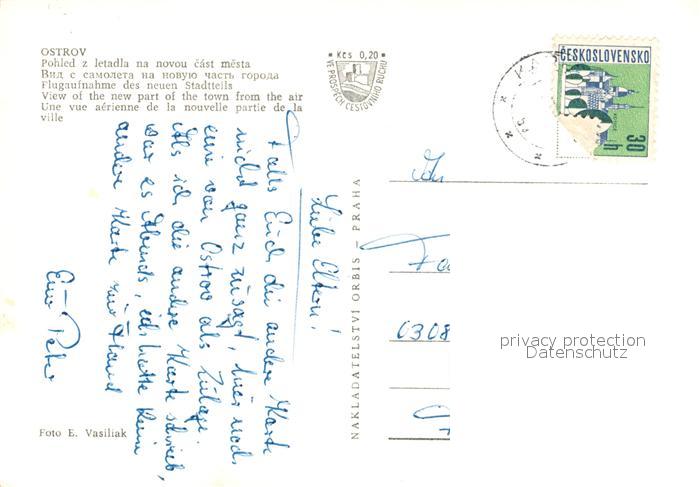 OSTROV
Pohled z letadla na novou část města
Вид с самолета на новую часть города
Flugaufnahme des neuen Stadtteils
View of the new part of the town from the air
Une vue aérienne de la nouvelle partie de la
ville
Kcs 0,20
VE PROSPĚCH CESTOVNÍHO RUCHU
ČESKOSLOVENSKO
30 h
Liebe Eltern!
Falls Euch die andere Karte
nicht ganz zusagt, hier noch
eine von Ostrov als Zulage.
Als ich die andere Karte schrieb,
war es Abends, ich hatte keine
andere Karte zur Hand
Euer Peter
NAKLADATELSTVÍ ORBIS PRAHA
Fa
0308
privacy protection
Datenschutz
Foto E. Vasiliak